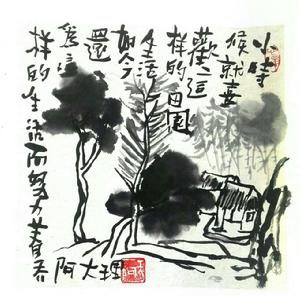 小時
候就喜
歡這
樣的田園
生活
如今
還
為這
樣的生活而努力著
阿大理